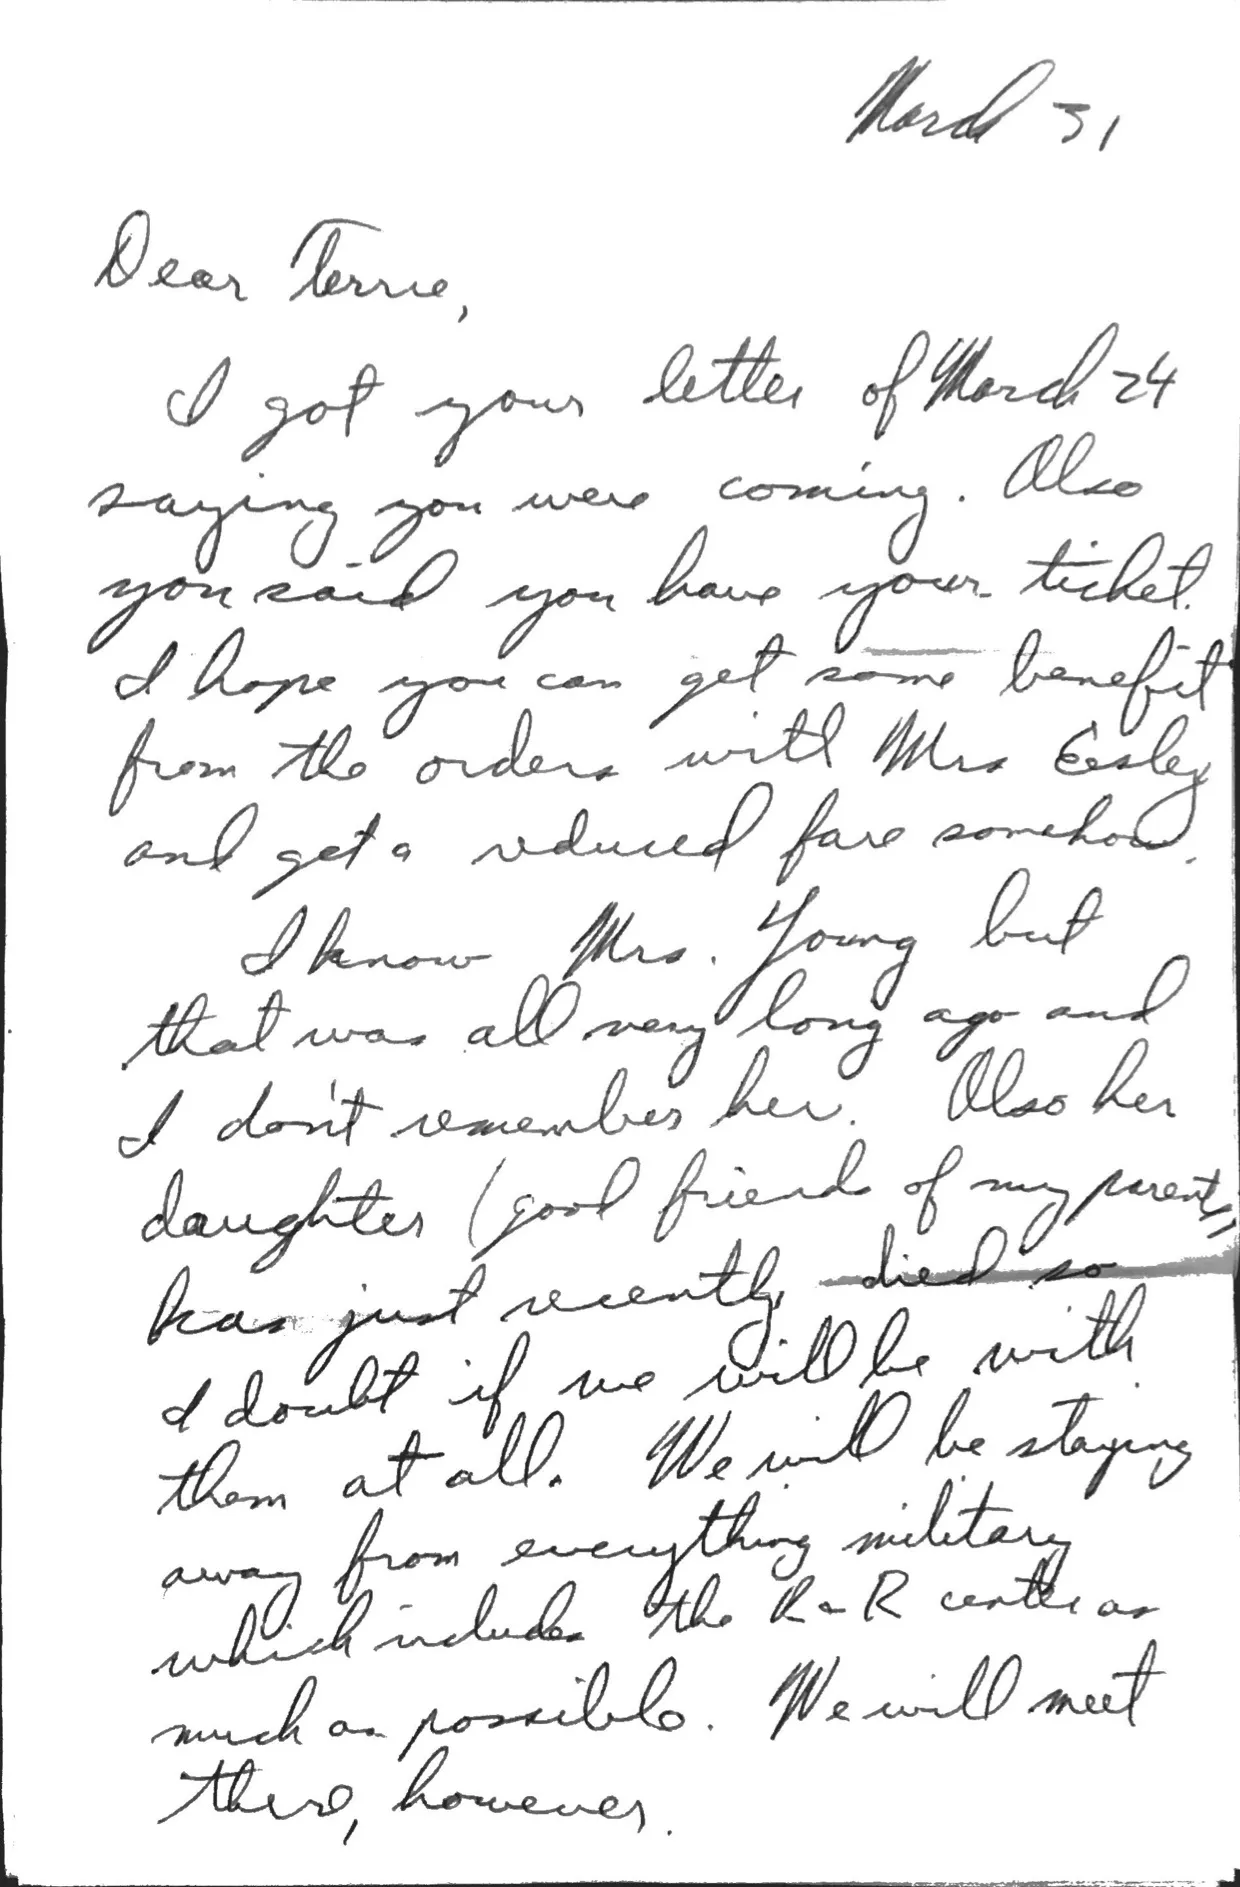 March 31
Dear Terrie,
I got your letter of March 24
saying you were coming. Also
you said you have your ticket.
I hope you can get some benefit
from the orders with Mrs Easley
and get a reduced fare somehow.
I know Mrs. Young but
that was all very long ago and
I don't remember her. Also her
daughter (good friends of my parents)
has just recently died so
I doubt if we will be with
them at all. We will be staying
away from everything military
which includes the R-R center as
much as possible. We will meet
there, however.